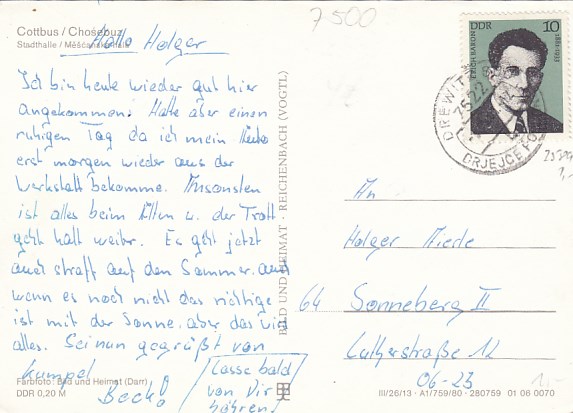 7500
Cottbus / Chośebuz
Stadthalle / Měsćańska hala
Hallo Holger
Ich bin heute wieder gut hier
angekommen. Hatte aber einen
ruhigen Tag da ich mein
erst morgen wieder aus der
Werkstatt bekomme. Ansonsten
ist alles beim Alten u. der Trott
geht halt weiter. Es geht jetzt
auch straff auf den Sommer. auch
wenn es noch nicht das richtige
ist mit der Sonne. aber das wird
alles. Sei nun gegrüßt von
Kumpel
Lasse bald
von Dir
hören!
Farbfoto: Bild und Heimat (Darr)
DDR 0,20 M
BILD UND HEIMAT · REICHENBACH (VOGTL)
DDR 10
ERICH BARON
1881-1933
DREWITZ
DRJEJCE
An
Holger
64 Sonneberg II
Lutherstraße 12
06-23
III/26/13 · A1/759/80 · 280759 01 06 0070
1,-